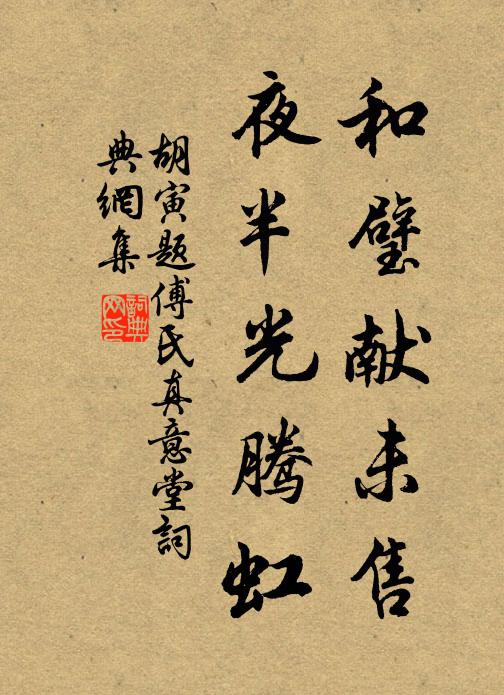 和璧献未售
夜半光腾虹
胡寅题傅氏真意堂詞
典網集
詞典
网印